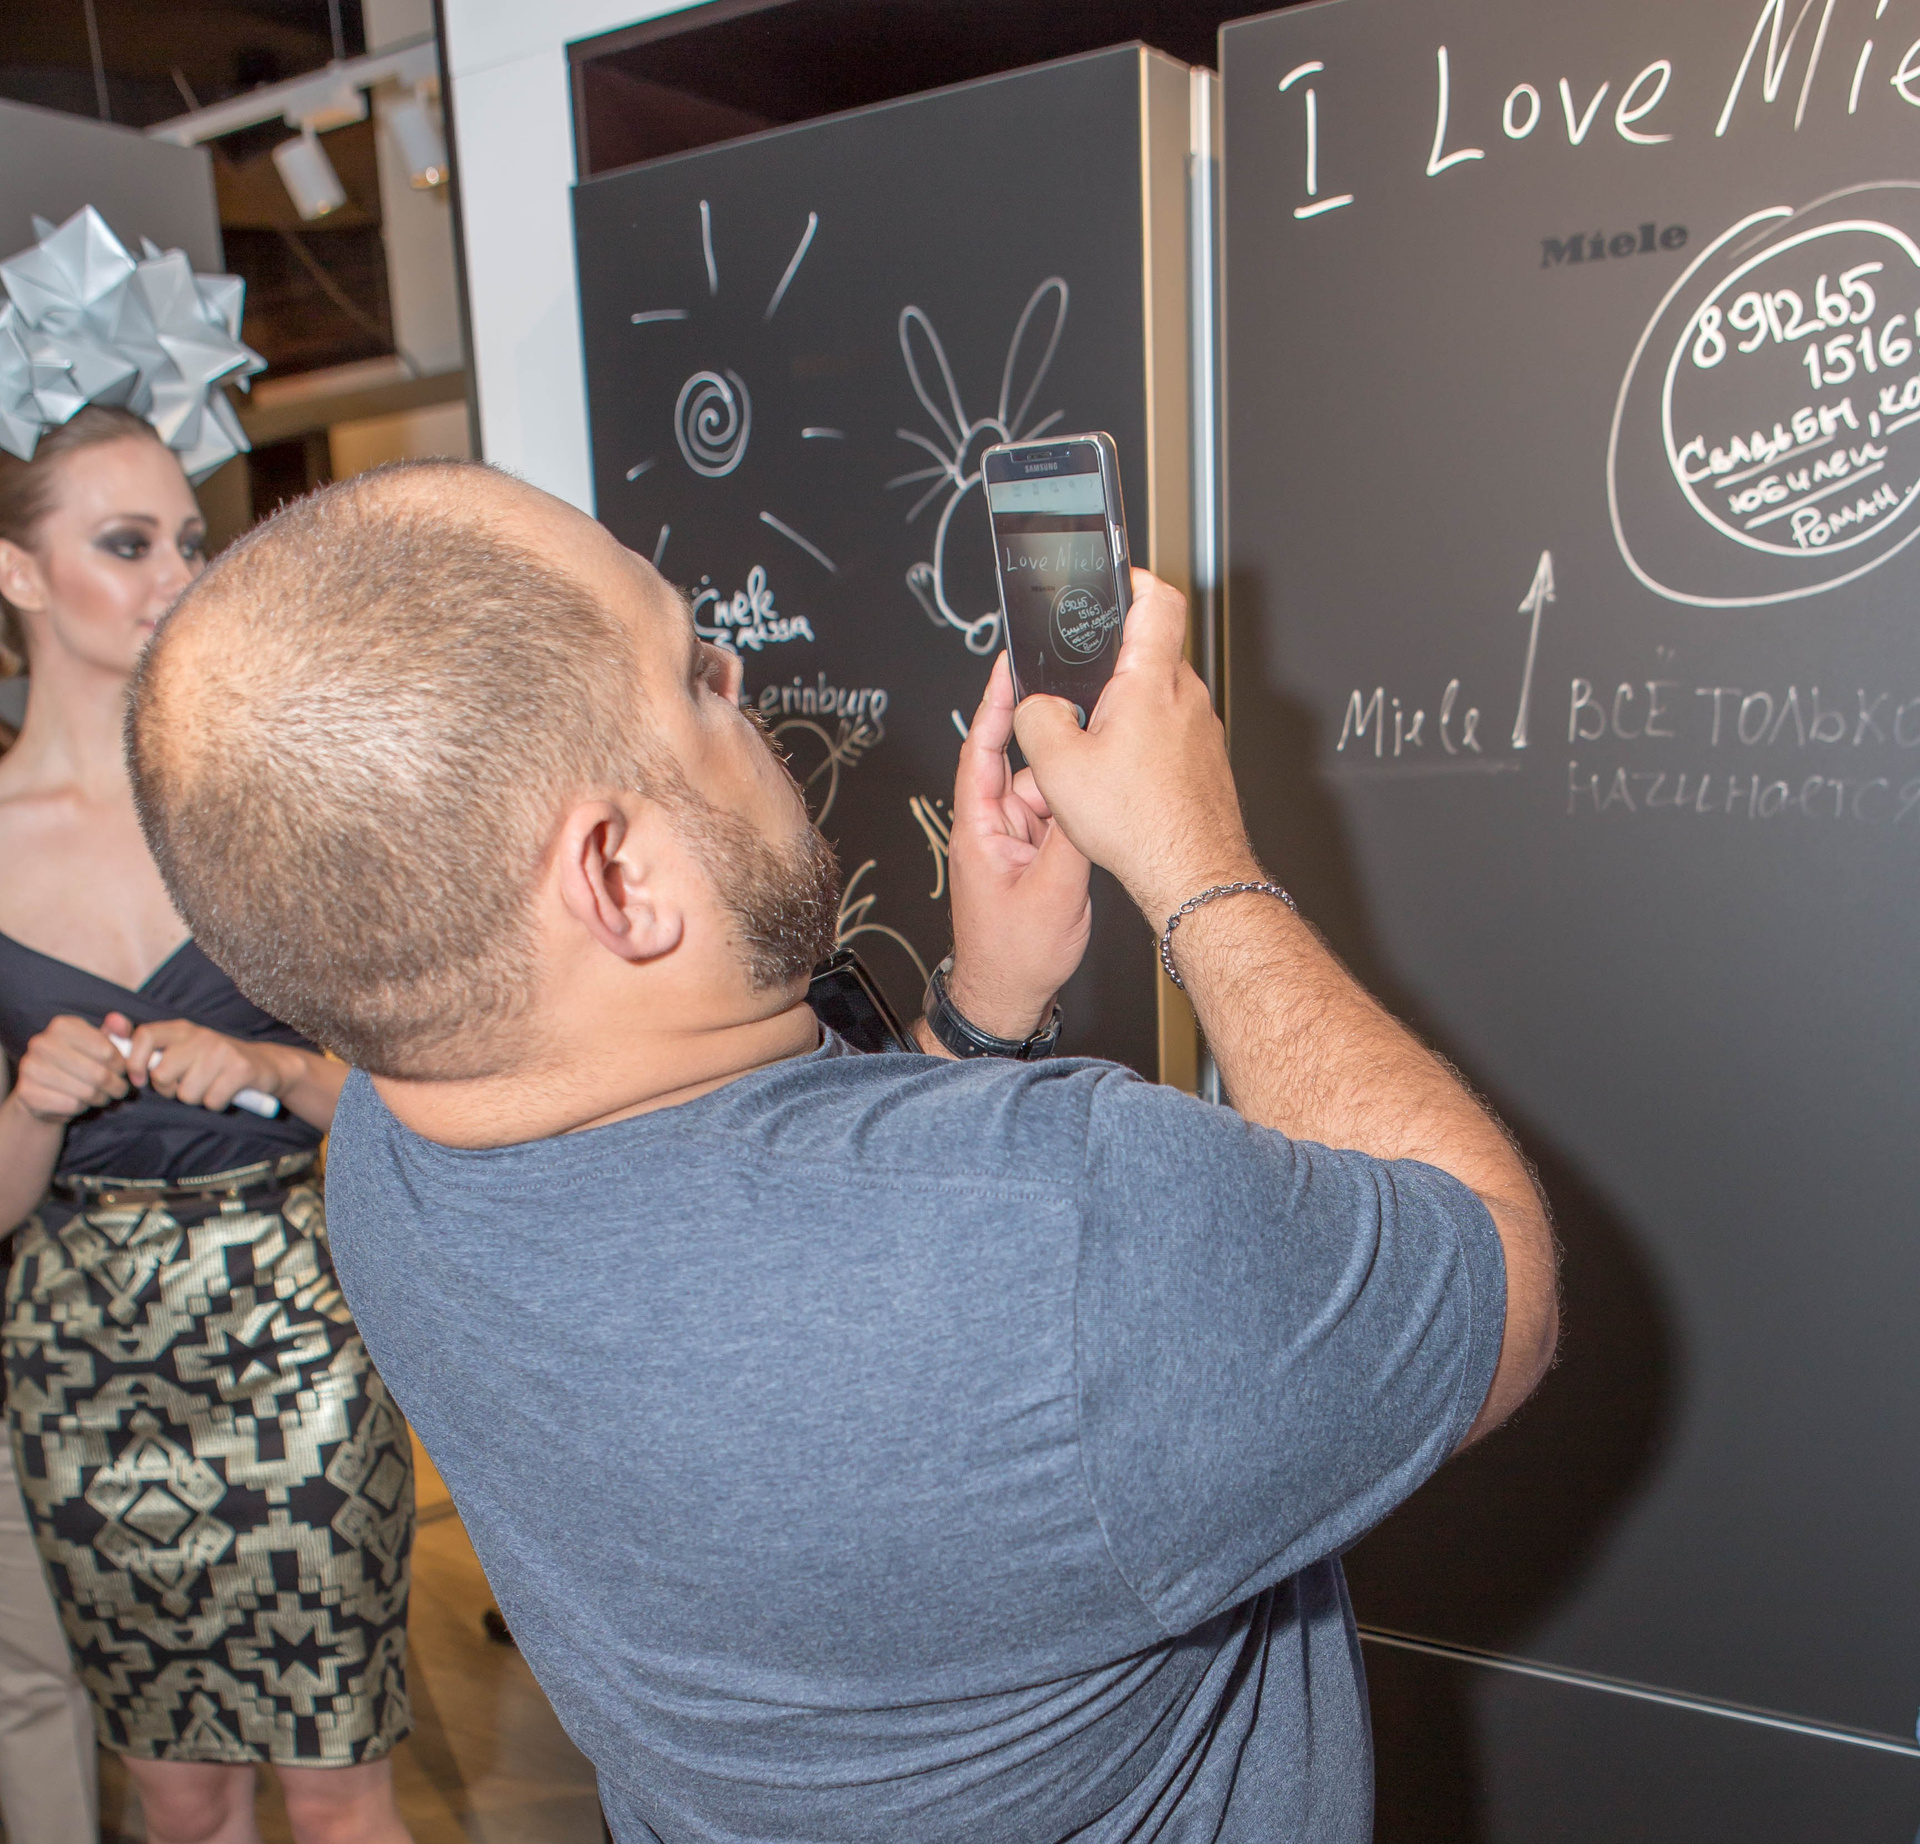 I Love Mie
Miele
891265
1516
Свадьбы, ко
юбилеи
Роман
Miele
ВСЁ ТОЛЬКО
НАЧИНАЕТСЯ
erinburg
SAMSUNG
Love Miele
89265
15165